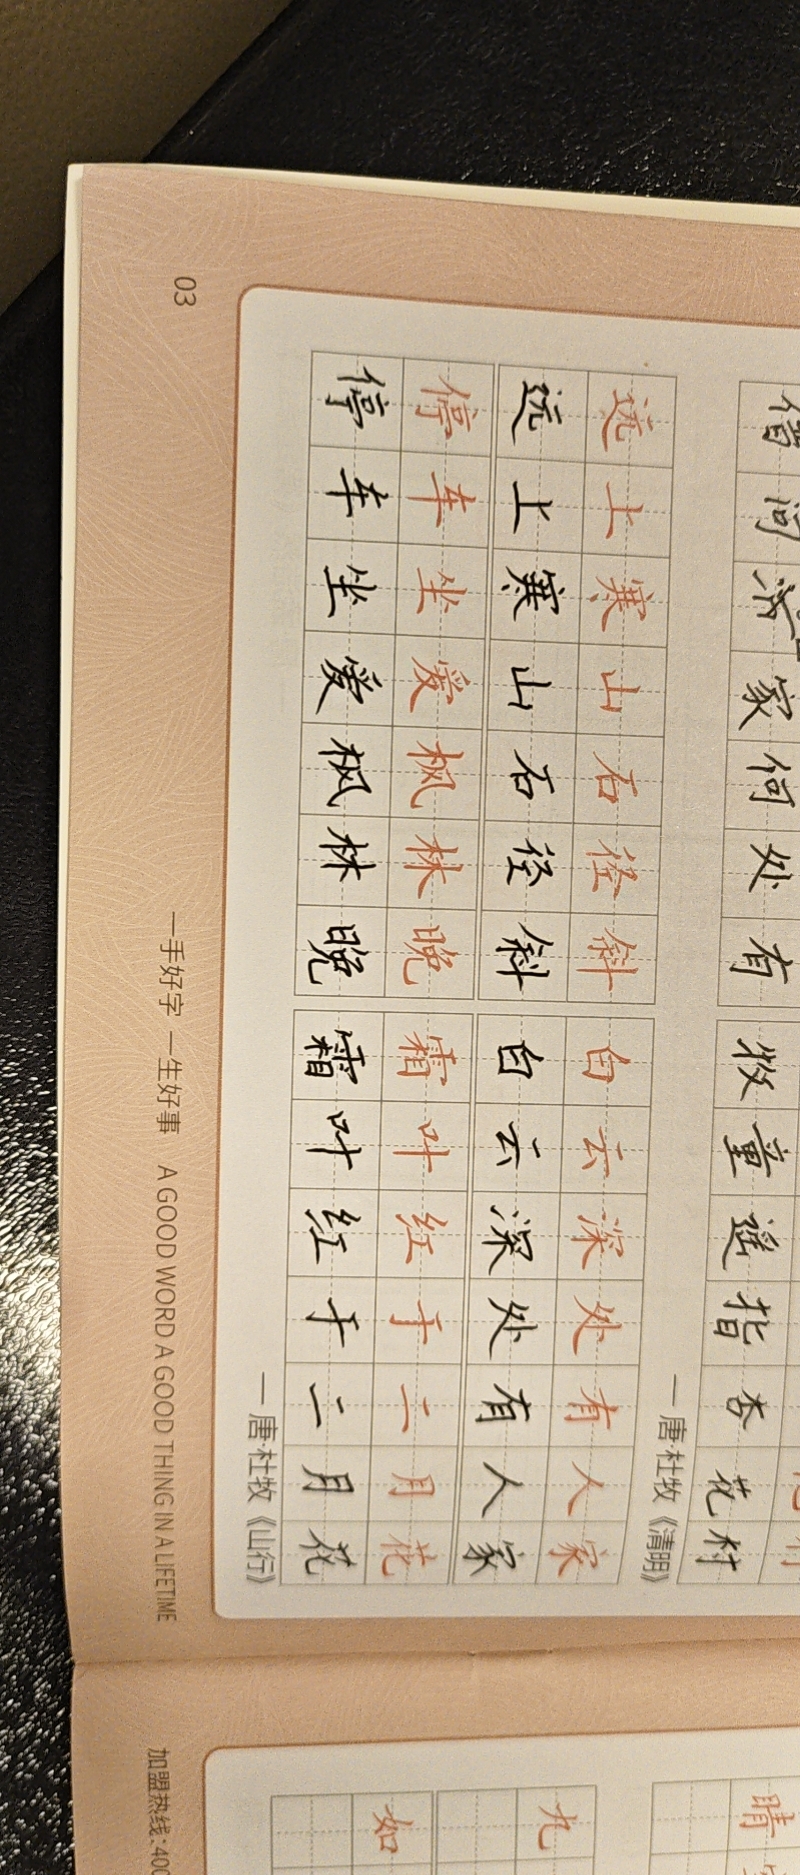 借问酒家何处有 牧童遥指杏花村
— 唐·杜牧《清明》
远上寒山石径斜 白云深处有人家
远上寒山石径斜 白云深处有人家
停车坐爱枫林晚 霜叶红于二月花
停车坐爱枫林晚 霜叶红于二月花
— 唐·杜牧《山行》
03
一手好字 一生好事 A GOOD WORD A GOOD THING IN A LIFETIME
晴
九
如
加盟热线:400